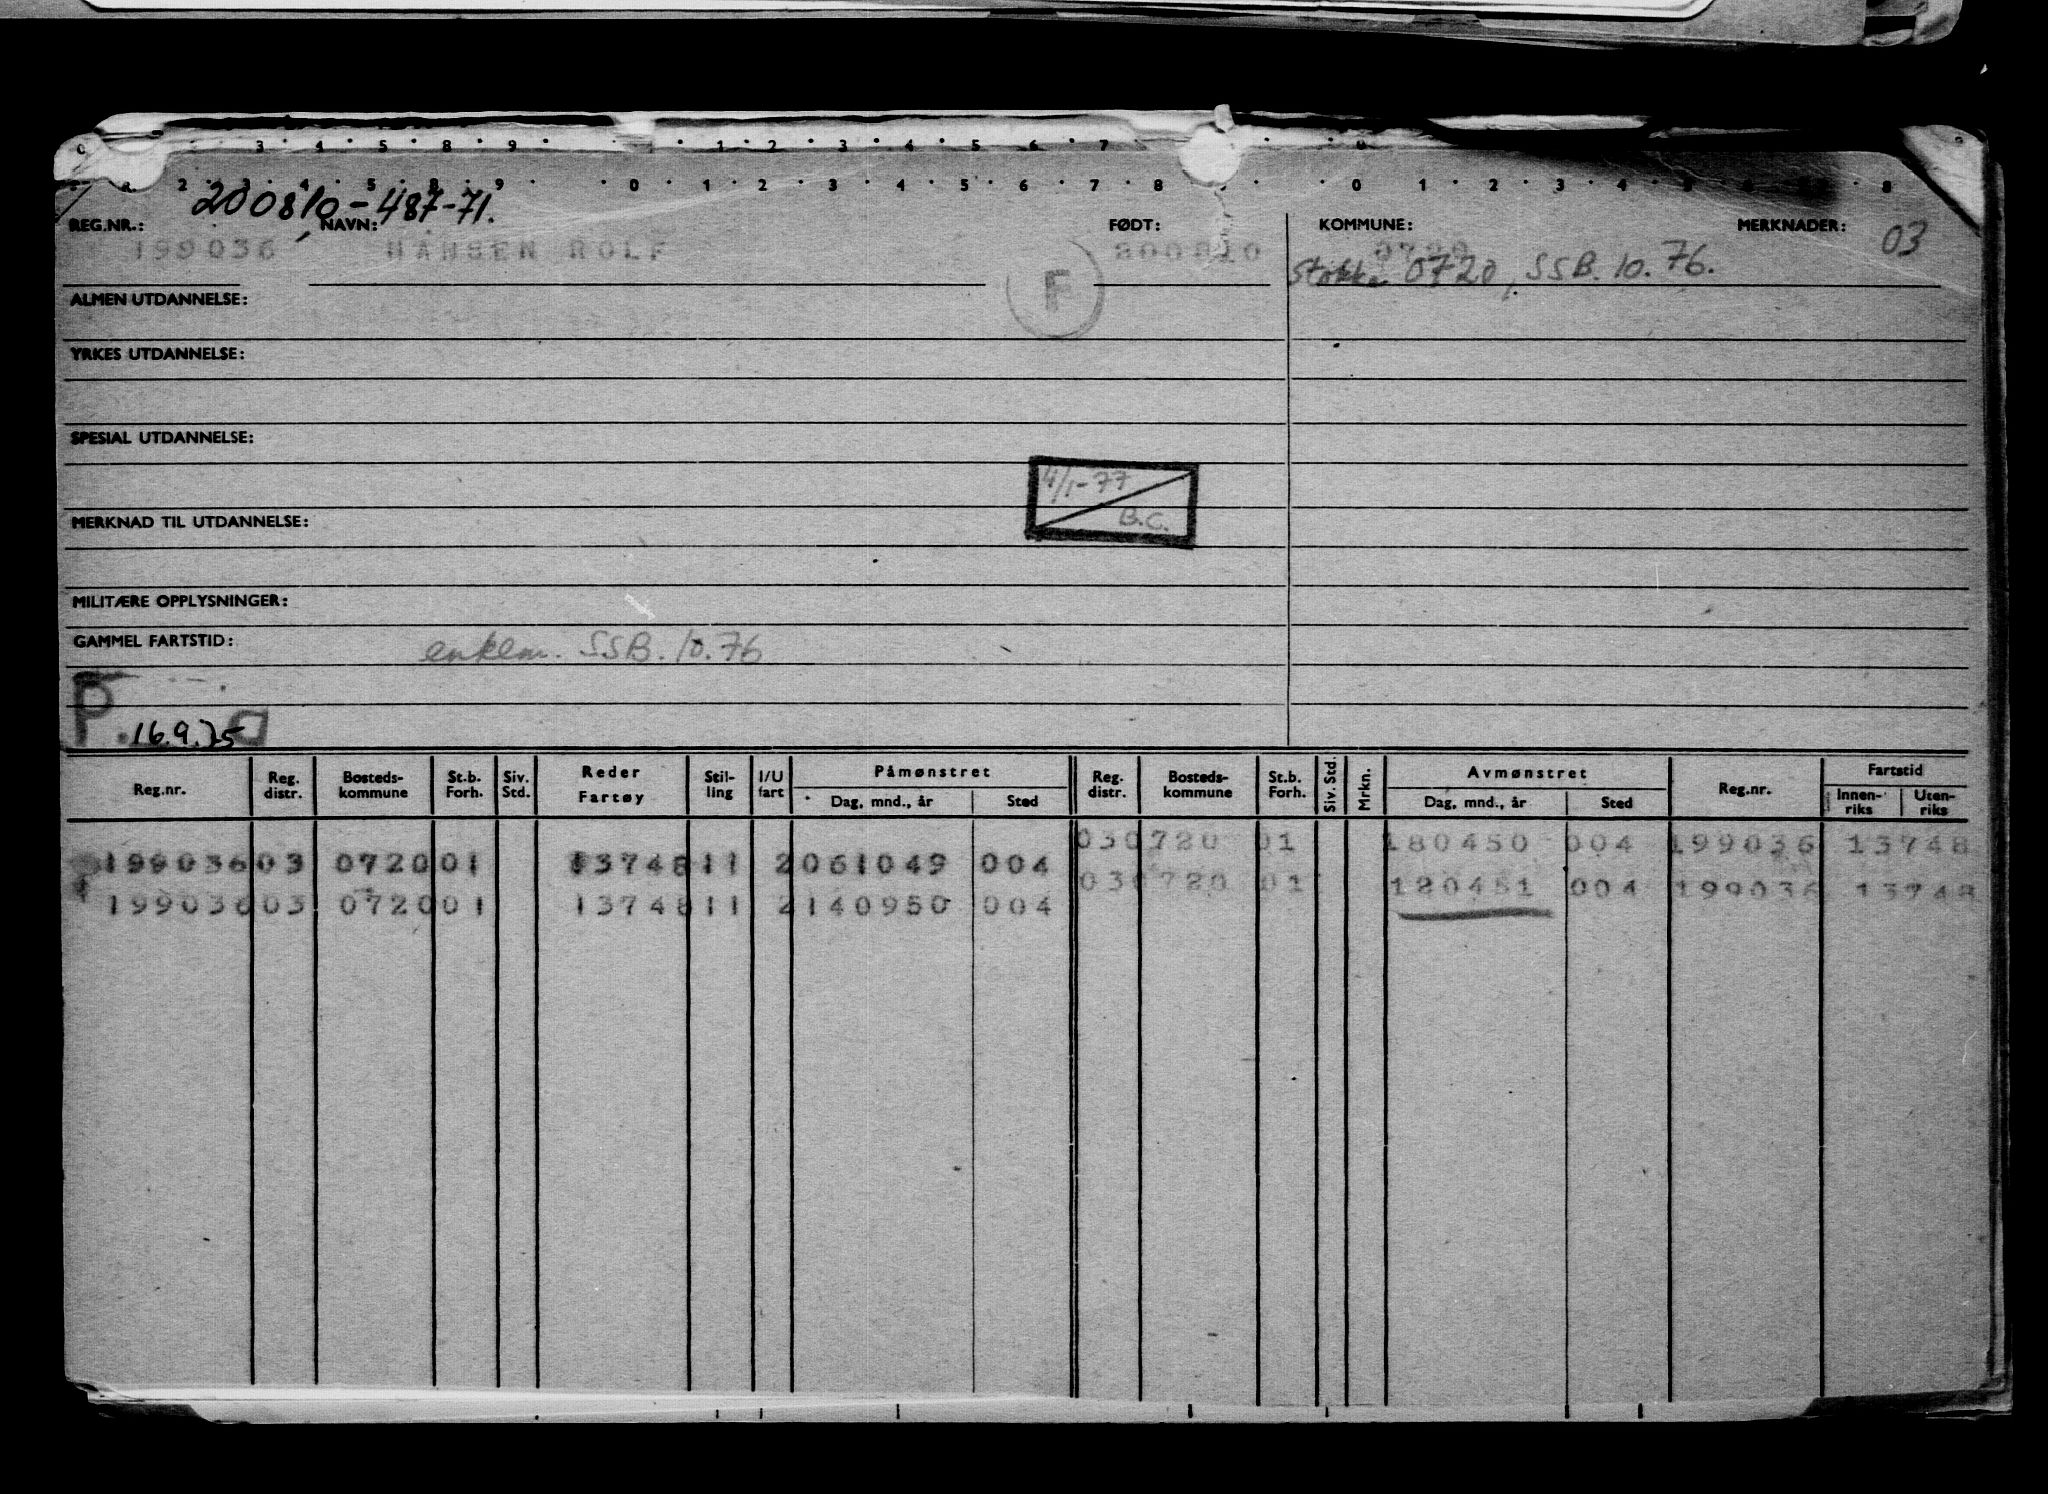 0 3 4 5 8 9 1 2 3 4 5 6 7 0
2 3 4 5 8 9 0 1 2 3 4 5 6 7 8 0 1 2 3 4 8
200810-487-71.
REG.NR.: NAVN: FØDT: KOMMUNE: MERKNADER: 03
199036 HANSEN ROLF 200810 0720
F Stokke 0720, SSB. 10. 76.
ALMEN UTDANNELSE:
YRKES UTDANNELSE:
SPESIAL UTDANNELSE:
4/1-77
B.C.
MERKNAD TIL UTDANNELSE:
MILITÆRE OPPLYSNINGER:
GAMMEL FARTSTID: SSB. 10.76
P. 16.9.75
Reg.nr. Reg. distr. Bosteds-kommune St.b. Forh. Siv. Std. Reder Fartøy Stil-ling I/U fart Påmønstret Dag, mnd., år Sted Reg. distr. Bosteds-kommune St.b. Forh. Siv. Std. Mrkn. Avmønstret Dag, mnd., år Sted Reg.nr. Fartstid Innen-riks Uten-riks
030720 01 180450 004 199036 13748
199036 03 0720 01 13748 11 2 061049 004
030720 01 120451 004 199036 13748
199036 03 0720 01 13748 11 2 140950 004